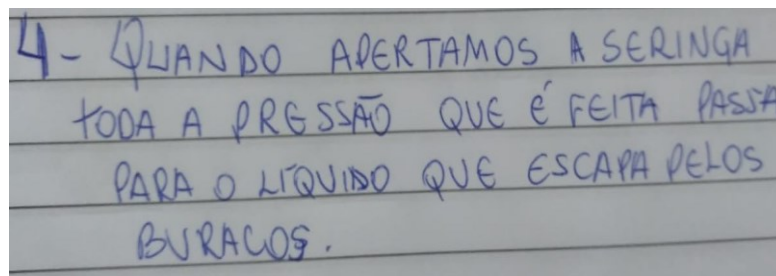 4 - QUANDO APERTAMOS A SERINGA
TODA A PRESSÃO QUE É FEITA PASSA
PARA O LÍQUIDO QUE ESCAPA PELOS
BURACOS.